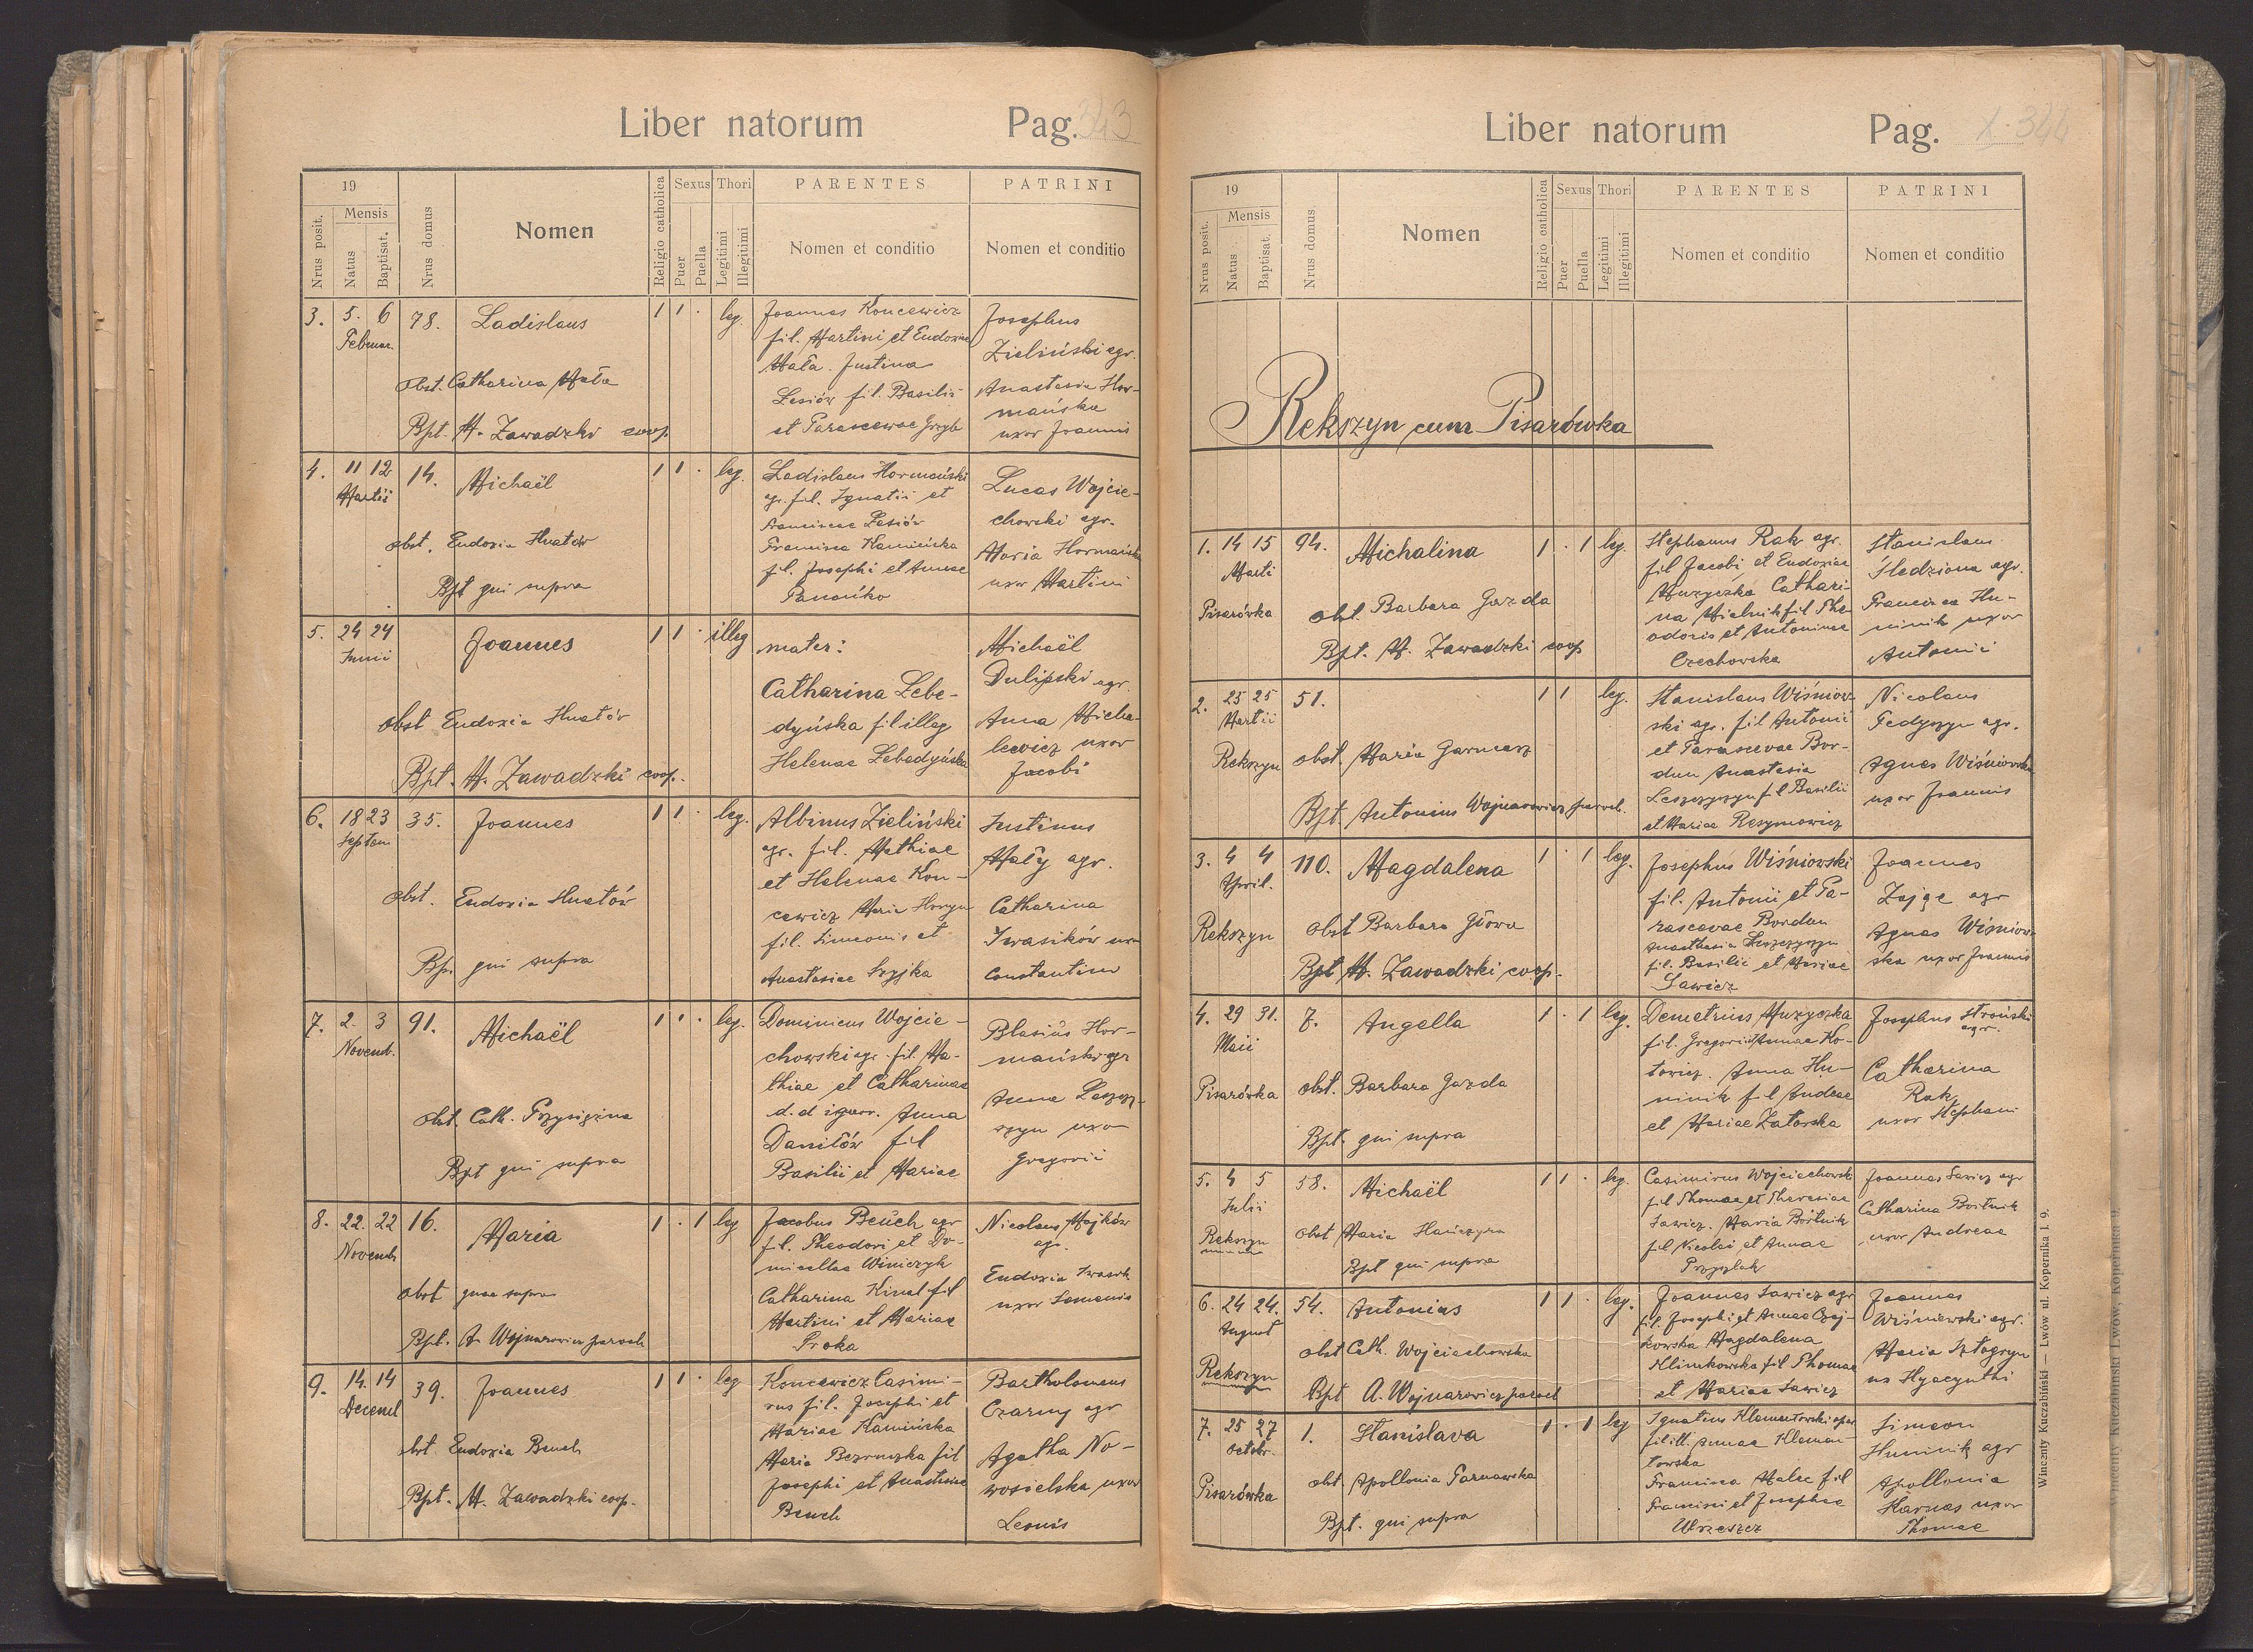 Liber natorum Pag. 343
19
Nrus posit.
Mensis
Natus
Baptisat.
Nrus domus
Nomen
Religio catholica
Sexus
Puer
Puella
Thori
Legitimi
Illegitimi
PARENTES
Nomen et conditio
PATRINI
Nomen et conditio
3. 5. 6 78. Ladislaus 1 1 · leg.
Februar.
obst. Catharina Mała
Bpt. M. Zawadzki coop.
Joannes Koncewicz
fil. Martini et Eudoxiae
Mała. Justina
Lesiów fil. Basilii
et Parascewae Grzyb
Josephus
Zieliński agr.
Anastasia Hor-
mańska
uxor Joannis
4. 11 12 14. Michaël 1 1 · leg.
Martii
obst. Eudoxia Hnatów
Bpt qui supra
Ladislaus Hormański
agr. fil. Ignatii et
Franciscae Lesiów
Francisca Kamińska
fil. Josephi et Annae
Lucas Wojcie-
chowski agr.
Maria Hormańska
uxor Martini
5. 24 24 Joannes 1 1 · illeg
Junii
obst Eudoxia Hnatów
Bpt. M. Zawadzki coop.
mater:
Catharina Lebe-
dyńska fil illeg
Helenae Lebedyńska
Michaël
Dulipski agr.
Anna Micha-
lewicz uxor
Jacobi
6. 18 23 35. Joannes 1 1 · leg.
Septem
obst. Eudoxia Hnatów
Bpt. qui supra
Albinus Zieliński
agr. fil. Mathiae
et Helenae Kon-
cewicz Maria
fil. Simeonis et
Anastasiae Szyjka
Justinus
Mały agr.
Catharina
Iwasików uxor
Constantini
7. 2. 3 91. Michaël 1 1 · leg.
Novemb.
obst. Cath.
Bpt qui supra
Dominicus Wojcie-
chowski agr. fil. Ma-
thiae et Catharinae
d. d ignor. Anna
Daniłów fil
Basilii et Mariae
Blasius Hor-
mański agr
Anna Leszczy-
szyn uxor
Gregorii
8. 22. 22 16. Maria 1 · 1 leg
Novemb
obst quae supra
Bpt. A. Wojnarowicz paroch
Jacobus Beuch agr
fil. Theodori et Do-
micellae Winiczyk
Catharina Kinal fil
Martini et Mariae
Proka
Nicolaus Majków
agr.
Eudoxia
uxor Semenis
9. 14. 14 39. Joannes 1 1 · leg
Decemb
obst. Eudoxia Beuch
Bpt. M. Zawadzki coop.
Koncewicz Casimi-
rus fil. Josephi et
Mariae Kamińska
Maria fil
Josephi et Anastasiae
Beuch
Bartholomeus
Czarny agr
Agatha No-
wosielska uxor
Leonis
Liber natorum Pag. 344
19
Nrus posit.
Mensis
Natus
Baptisat.
Nrus domus
Nomen
Religio catholica
Sexus
Puer
Puella
Thori
Legitimi
Illegitimi
PARENTES
Nomen et conditio
PATRINI
Nomen et conditio
Rekszyn cum Pisarówka
1. 14 15 94. Michalina 1 · 1 leg.
Marti
Pisarówka
obst. Barbara Gazda
Bpt. M. Zawadzki coop
Stephanus Rak agr.
fil Jacobi et Eudoxiae
Muzyczka Cathari-
na Mielnik fil The-
odoris et Antoninae
Czechowska
Stanislaus
Śledziona agr.
Francisca Hu-
minik uxor
Antonii
2. 25 25 51. 1 1 leg.
Martii
Rekszyn
obst. Maria Garncarz
Bpt. Antonius Wojnarowicz paroch.
Stanislaus Wiśniow-
ski agr. fil Antonii
et Parascevae Bor-
dun Anastasia
Leszczyszyn fil Basilii
et Mariae
Nicolaus
Fedyszyn agr.
Agnes Wiśniowska
uxor Joannis
3. 4 4 110. Magdalena 1 · 1 leg.
April.
Rekszyn
obst Barbara
Bpt M. Zawadzki coop.
Josephus Wiśniowski
fil. Antonii et Pa-
rascevae Bordun
Anasthasia Leszczyszyn
fil. Basilii et Mariae
Sawicz
Joannes
Zając agr
Agnes Wiśniow-
ska uxor Joannis
4. 29 31. 7. Angella 1 · 1 leg.
Maii
Pisarówka
obst. Barbara Gazda
Bpt. qui supra
Demetrius Muzyczka
fil. Gregorii et Annae Ko-
towicz. Anna Hu-
minik fil Andreae
et Mariae Zatorska
Josephus Stroński
agr.
Catharina
Rak
uxor Stephani
5. 4 5 58. Michaël 1 1 · leg.
Julii
Rekszyn
obst Maria
Bpt qui supra
Casimirus Wojciechowski
fil Thomae et Theresiae
Sawicz. Maria Bortnik
fil Nicolai et Annae
Przyszlak
Joannes Sawicz agr
Catharina Bortnik
uxor Andreae
6. 24 24. 54. Antonius 1 1 · leg.
August
Rekszyn
obst Cath. Wojciechowska
Bpt A. Wojnarowicz paroch
Joannes Sawicz agr
fil. Josephi et Annae Czaj-
kowska Magdalena
Klimkowska fil Thomae
et Mariae Sawicz
Joannes
Wiśniewski agr.
Maria
ux Hyacynthi
7. 25 27 1. Stanislava 1 · 1 leg
Octobr.
Pisarówka
obst Apollonia Tarnawska
Bpt. qui supra
Ignatius Klementowski
fil ill. Annae Klemen-
towska
Francisca fil
Francisci et Josephae
Wrzeszcz
Simeon
Huminik agr
Apollonia
Harnas uxor
Thomae
Winczenty Kuczabiński — Lwów ul. Kopernika l. 9.